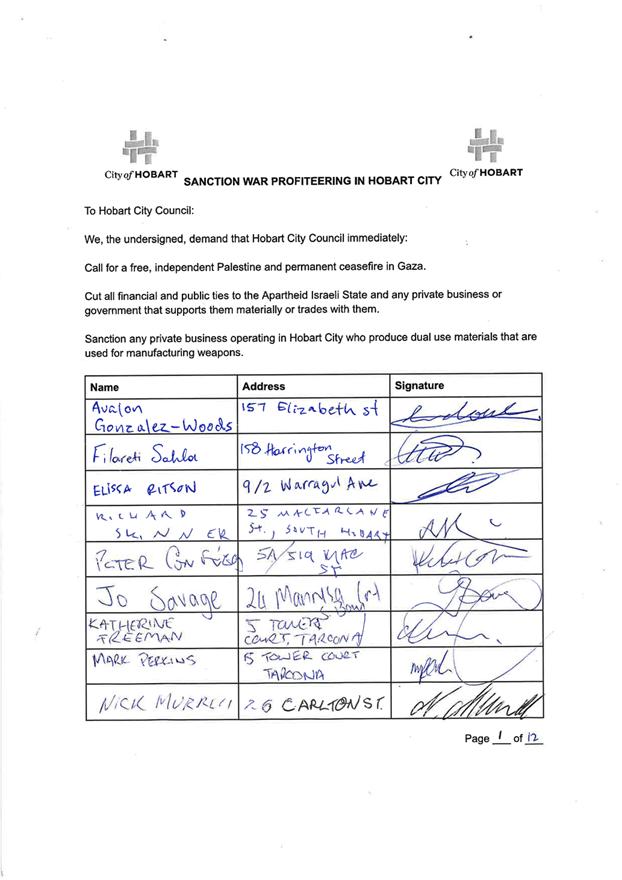 City of HOBART
City of HOBART
SANCTION WAR PROFITEERING IN HOBART CITY
To Hobart City Council:
We, the undersigned, demand that Hobart City Council immediately:
Call for a free, independent Palestine and permanent ceasefire in Gaza.
Cut all financial and public ties to the Apartheid Israeli State and any private business or
government that supports them materially or trades with them.
Sanction any private business operating in Hobart City who produce dual use materials that are
used for manufacturing weapons.
Name Address Signature
Avalon
Gonzalez-Woods 157 Elizabeth st
Filareti 158 Harrington
Street
ELISSA RITSON 9/2 Warragul Ave
RICHARD 25 MACFARLANE
SKINNER St., SOUTH HOBART
PETER 5A/519 MAC
ST
Jo Savage 24
KATHERINE 5 TOWER
FREEMAN COURT, TAROONA
MARK PERKINS 5 TOWER COURT
TAROONA
NICK 26 CARLTON ST.
Page 1 of 12